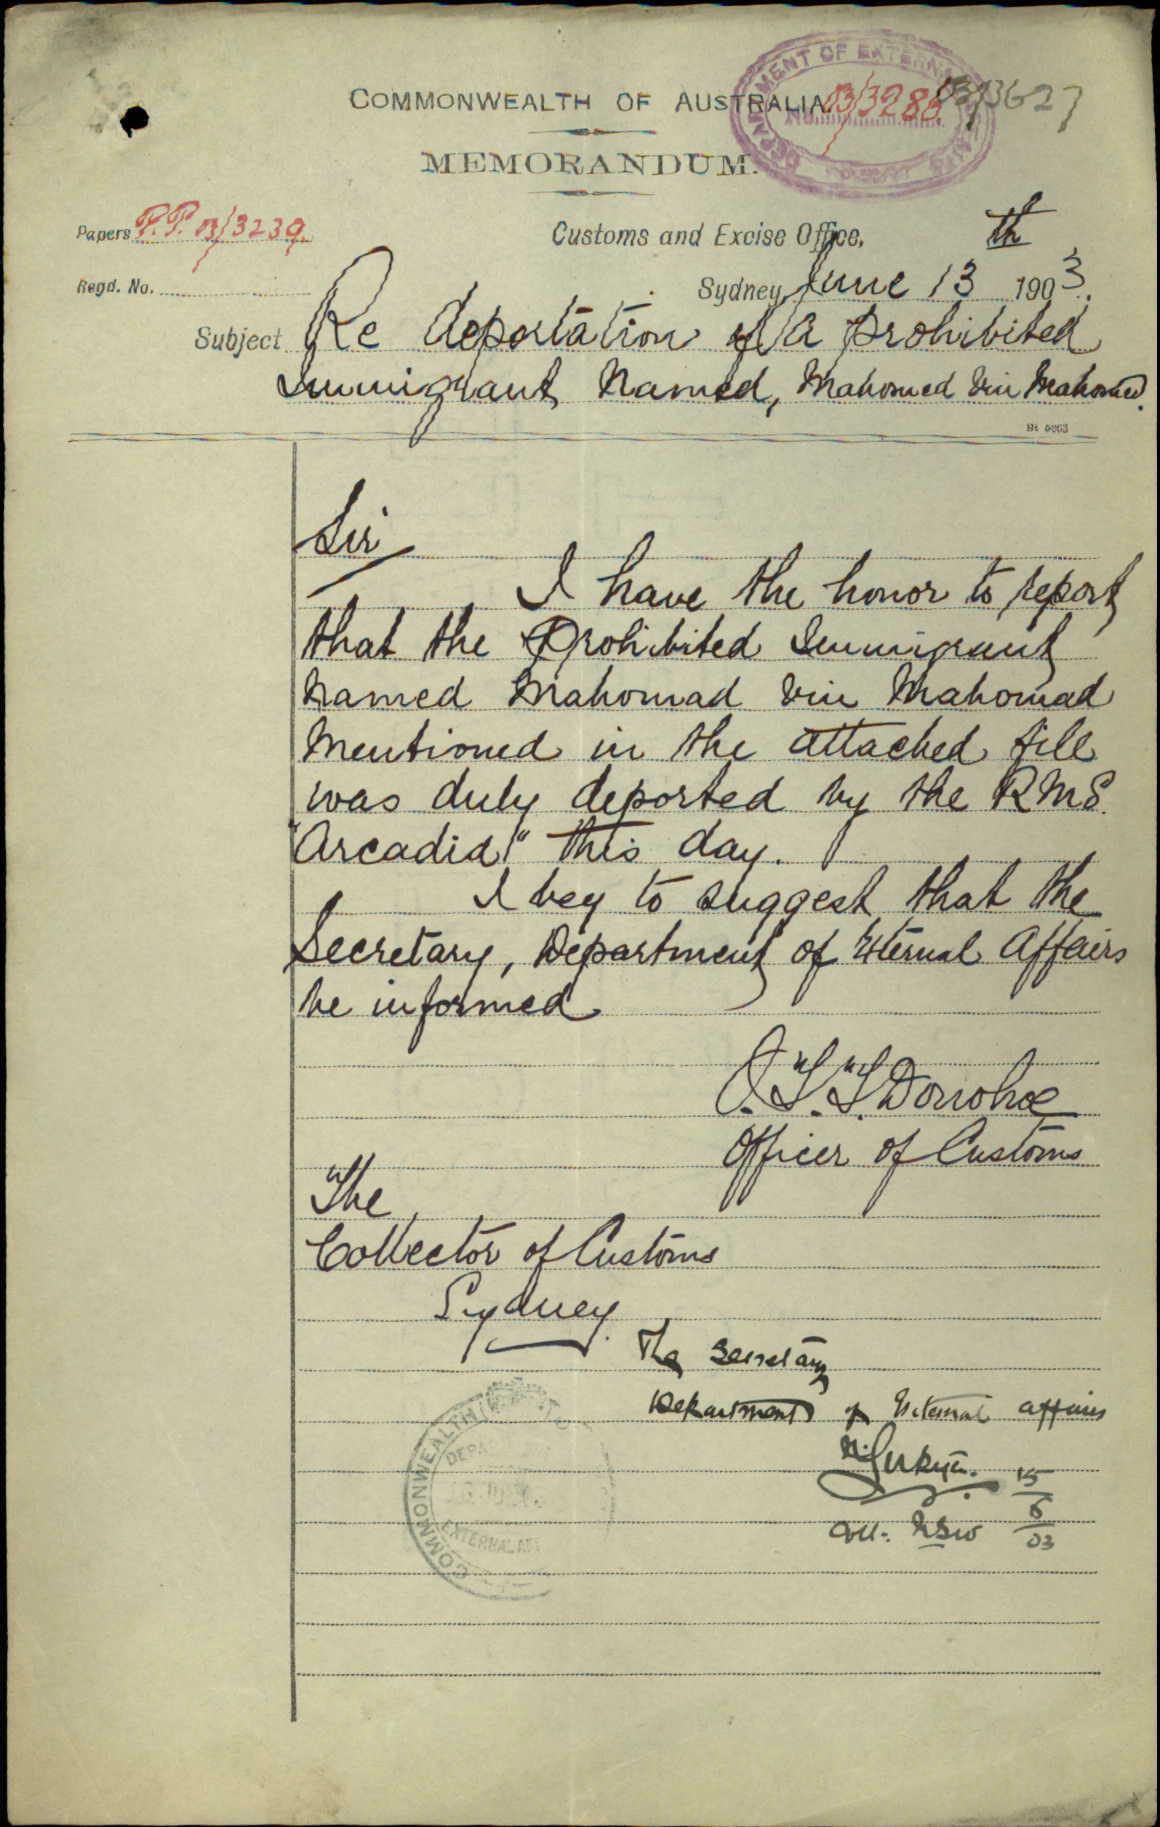 COMMONWEALTH OF AUSTRALIA.
DEPARTMENT OF EXTERNAL AFFAIRS
No. 03/3288
03/3627
MEMORANDUM.
Papers P.P. 03/3239
Customs and Excise Office,
Regd. No.
Sydney, June 13th 1903.
Subject Re deportation of a prohibited
Immigrant Named, Mahomed Bin Mahomed.
Sir
I have the honor to report
that the Prohibited Immigrant
Named Mahomad Bin Mahomad
Mentioned in the attached file
was duly deported by the R.M.S.
"Arcadia" this day.
I beg to suggest that the
Secretary, Department of External Affairs
be informed
Donohoe
Officer of Customs
The
Collector of Customs
Sydney.
The Secretary
Department of External Affairs
15
6
03
Coll: NSW
COMMONWEALTH
EXTERNAL AFF